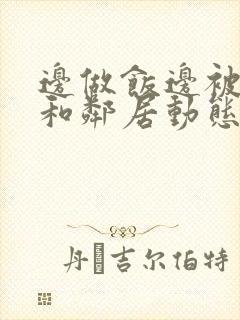 邊做飯邊被
和鄰居動態
丹 吉尔伯特